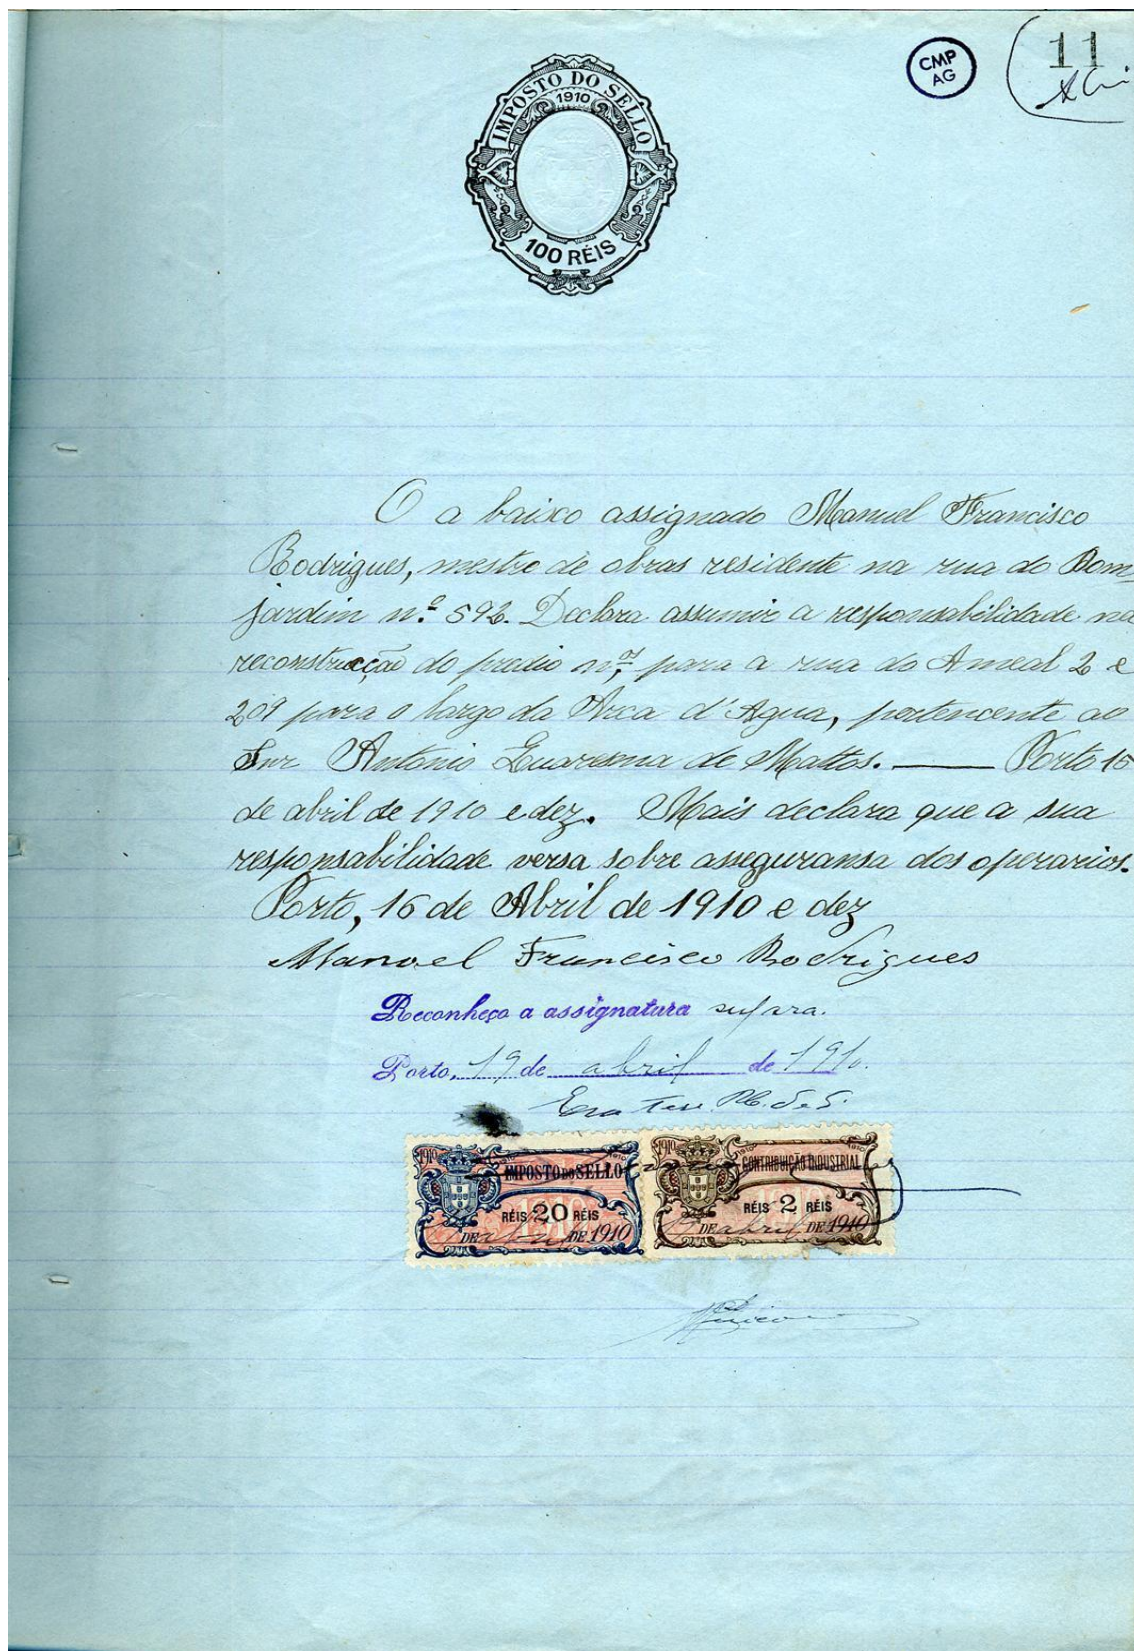 CMP
AG
11
IMPOSTO DO SELLO
1910
100 RÉIS
O a baixo assignado Manuel Francisco
Rodrigues, mestre de obras residente na rua do Bom
jardim n.º 592. Declara assumir a responsabilidade na
reconstrucção do predio n.os, para a rua do Ameal 2 e
209 para o largo da Arca d'Agua, pertencente ao
Snr Antonio Quaresma de Mattos. Porto 15
de abril de 1910 e dez. Mais declara que a sua
responsabilidade versa sobre aseguransa dos operarios.
Porto, 16 de Abril de 1910 e dez
Manoel Francisco Rodrigues
Reconheço a assignatura supra.
Porto, 19 de abril de 1910.
1910 IMPOSTO DO SELLO
RÉIS 20 RÉIS
DE abril DE 1910
1910 CONTRIBUIÇÃO INDUSTRIAL
RÉIS 2 RÉIS
DE abril DE 1910